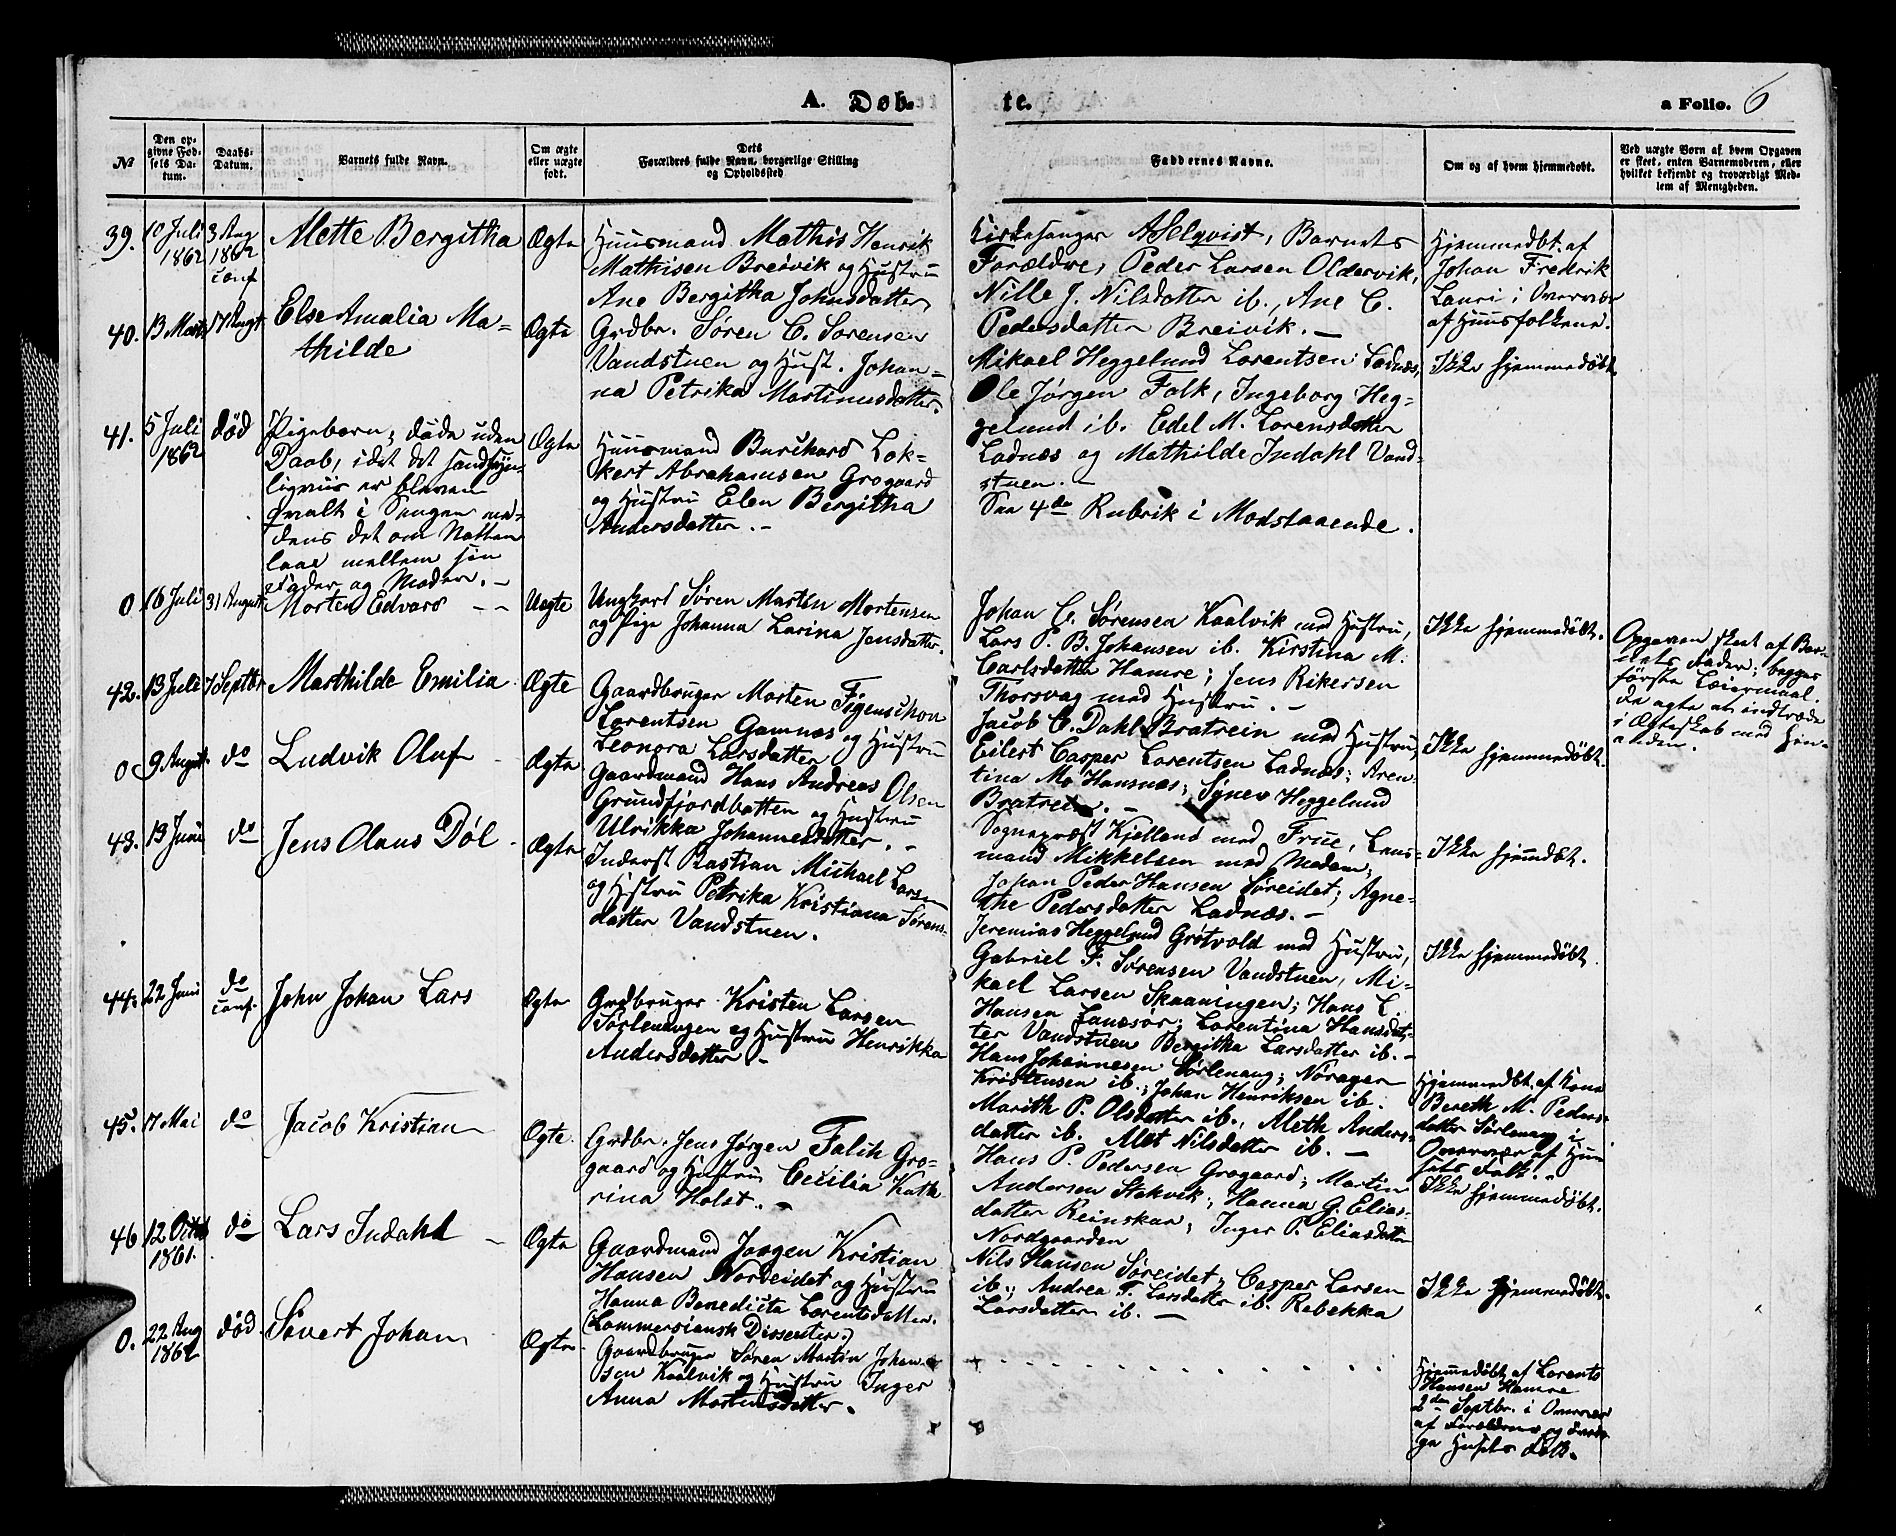 A. Døb-
te.
a Folio. 6
№
Den op-
givne Fød-
sels Da-
tum.
Daabs-
Datum.
Barnets fulde Navn.
Om ægte
eller uægte
født.
Dets
Forældres fulde Navn, borgerlige Stilling
og Opholdssted
Faddernes Navne.
Om og af hvem hjemmedøbt.
Ved uægte Børn af hvem Opgaven
er skeet, enten Barnemoderen, eller
hvilket bekjendt og troværdigt Med-
lem af Menigheden.
39.
10 Juli
1862
3 Aug
1862
conf
Alette Bergitha
Ægte
Huusmand Mathis Henrik
Mathisen Breivik og Hustru
Ane Bergitha Johnsdatter
Kirkesanger A Selqvist, Barnets
Forældre, Peder Larsen Oldervik,
Nille J. Nilsdatter ib., Ane C.
Pedersdatter Breivik. —
Hjemmedbt. af
Johan Fredrik
Lauri i Overvær
af Huusfolkene.
40.
13 Marts
17 Augt
Else Amalia Ma-
thilde
Ægte
Grdbr. Søren C. Sørensen
Vandstuen og Hust. Johan-
na Petrika Martinusdatter
Mikael Heggelund Lorentsen Ladnæs,
Ole Jørgen Falk, Ingeborg Heg-
gelund ib. Edel M. Lorensdatter
Ladnæs og Mathilde Indahl Vand-
stuen. —
Ikke hjemmedøbt
41.
5 Juli
1862
død
Pigebarn, døde uden
Daab, idet det sandsyn-
ligviis er bleven
qvalt i Sengen me-
dens det om Natten
laae mellem sin
Fader og Moder. —
Ægte
Huusmand Burchard Lok-
kert Abrahamsen Grogaard
og Hustru Elen Bergitha
Andersdatter. —
See 4de Rubrik i Modstaaende.
0
16 Juli
31 August
Morten Edvard — —
Uægte
Ungkarl Søren Martin Mortensen
og Pige Johanna Larina Jensdatter.
Johan C. Sørensen Kaalvik med Hustru,
Lars P. B. Johansen ib. Kirstina M.
Carlsdatter Hamre; Jens Rikersen
Thorsvag med Hustru. —
Ikke hjemmedøbt.
Opgaven skeet af Bar-
nets Fader; begges
første Leiermaal.
De agte at indtræde
i Ægteskab med hin-
anden.
42.
13 Juli
7 Septbr
Marthilde Emilia
Ægte
Gaardbruger Morten Figenschou
Lorentsen Gamnæs og Hustru
Leonora Larsdatter
Jacob C. Dahl Bratrein med Hustru,
Eilert Casper Lorentsen Ladnæs; Aren-
tina M. Hansnæs; Synev Heggelund
Bratrein. —
Ikke hjemmedøbt.
0
9 August
do
Ludvik Oluf
Ægte
Gaardmand Hans Andreas Olsen
Grundfjordbotten og Hustru
Ulrikka Johannesdatter. —
Sognepræst Kjelland med Frue, Lens-
mand Mikkelsen med Madam;
Johan Peder Hansen Søreidet; Agne-
the Pedersdatter Ladnæs. —
Ikke hjemdbt.
43.
13 Juni
do
Jens Olaus Døl
Ægte
Inderst Bastian Michael Larsen
og Hustru Petrika Kristiana Sørens-
datter Vandstuen.
Jeremias Heggelund Grøtvold med Hustru,
Gabriel F. Sørensen Vandstuen, Mi-
kael Larsen Skaaningen; Hans L.
Hansen ; Lorentina Hansdat-
ter Vandstuen Bergitka Larsdatter ib. —
Ikke hjemmedøbt.
44.
22 Juni
do
conf.
John Johan Lars
Ægte
Grdbruger Kristen Larsen
Sørlenangen og Hustru Henrikka
Andersdatter —
Hans Johannesen Sørlenang; Nøragen
Kristensen ib.; Johan Henriksen ib.
Marith P. Olsdatter ib., Aleth Anders-
datter ib. Alet Nilsdatter ib. —
Hjemmedbt. af Kone
Bereth M. Peders-
datter Sørlenang i
Overvær af Huu
sets Folk. —
45.
7 Mai
do
Jacob Kristian
Ægte.
Grdbr. Jens Jørgen Falch Gro-
gaard og Hustru Cecilia Kath
rina Holst. —
Hans P. Pedersen Grogaard; Martin
Andersen Stakvik; Hanna G. Elias-
datter Reinskar; Inger P. Eliasdatter
Nordgaarden
Ikke hjemmedøbt.
46
12 Octbr
1861.
do
Lars Indahl —
Ægte
Gaardmand Jørgen Kristian
Hansen Nordeidet og Hustru
Hanna Benedicta Lorentsdatter.
(Lammersiansk Dissenter.)
Nils Hansen Søreidet; Casper Larsen
ib.; Andrea F. Larsdatter ib. Rebekka
Larsdatter ib. —
Ikke hjemmedøbt.
0.
22 Aug
1862
død.
Sivert Johan
Ægte
Gaardbruger Søren Martin Johan-
sen Kaalvik og Hustru Inger
Anna Mortensdatter.
Hjemmedøbt af Lorents
Hansen Hamre
2den Septbr. i Overvær
af Forældrene og øvri-
ge Husets Folk.